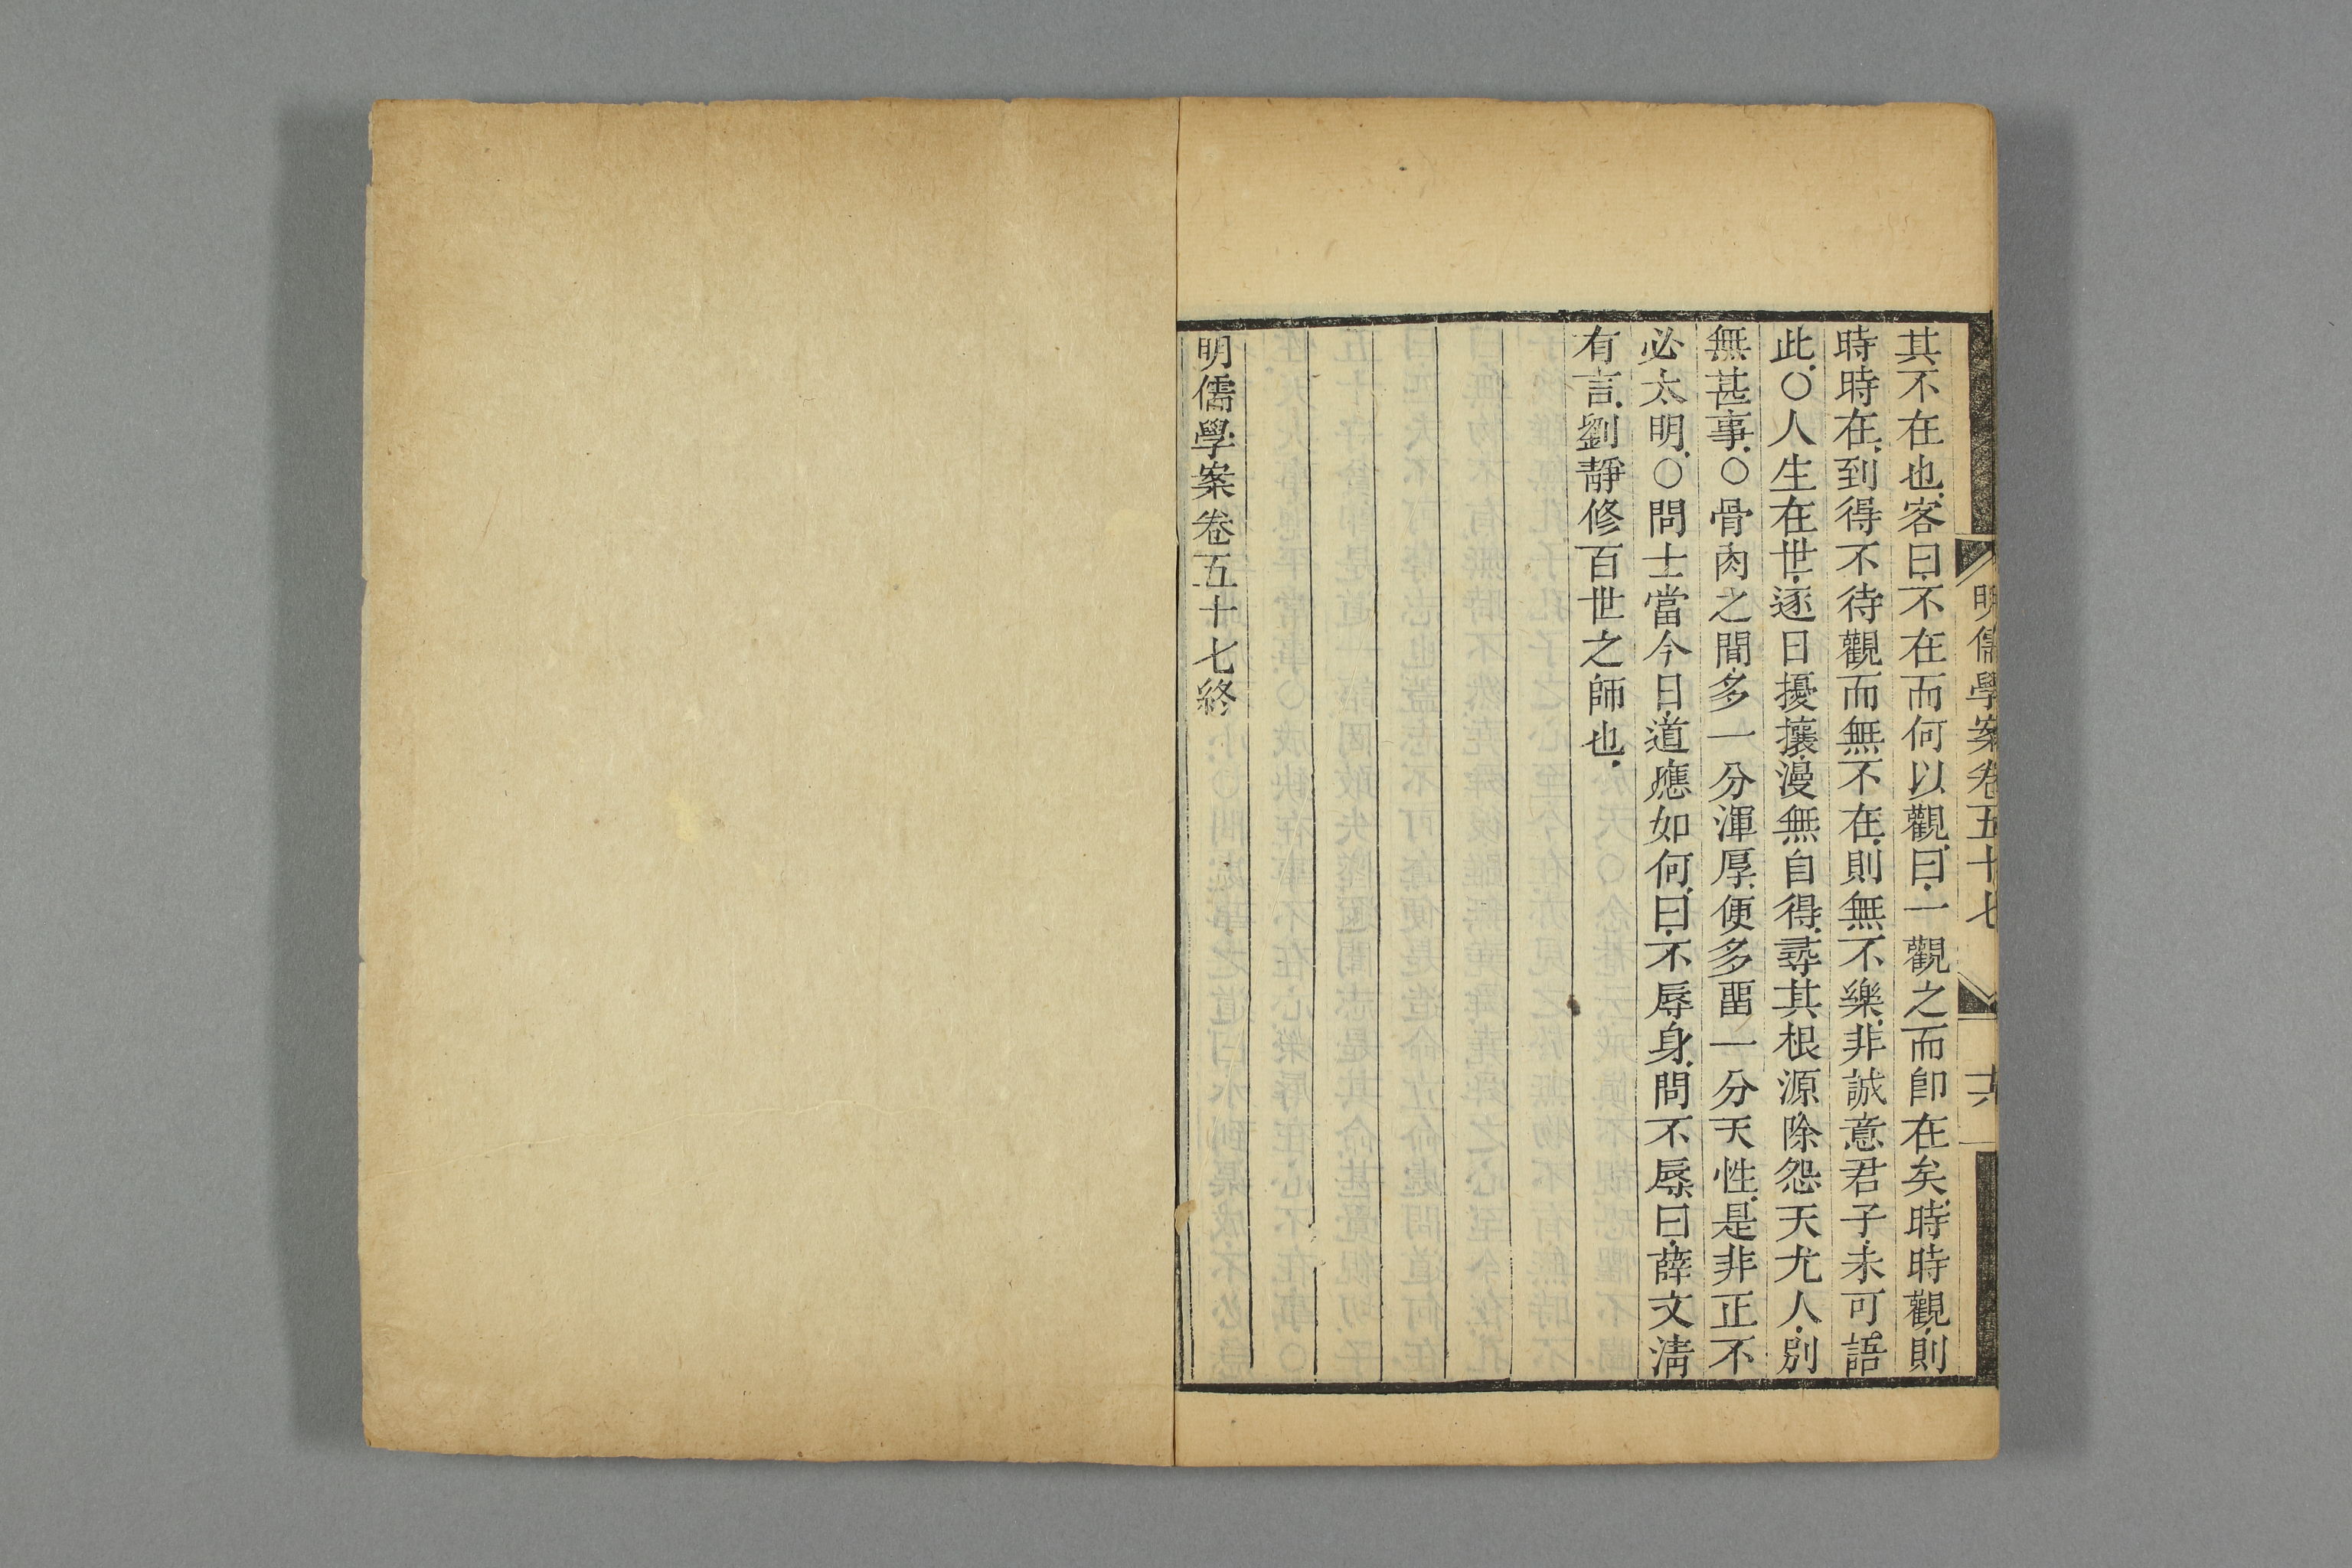 明儒學案卷五十七
十六
其不在也客曰不在而何以觀曰一觀之而卽在矣時時觀則
時時在到得不待觀而無不在則無不樂非誠意君子未可語
此○人生在世逐日擾攘漫無自得尋其根源除怨天尤人別
無甚事○骨肉之間多一分渾厚便多畱一分天性是非正不
必太明○問士當今日道應如何曰不辱身問不辱曰薛文淸
有言劉靜修百世之師也
明儒學案卷五十七終